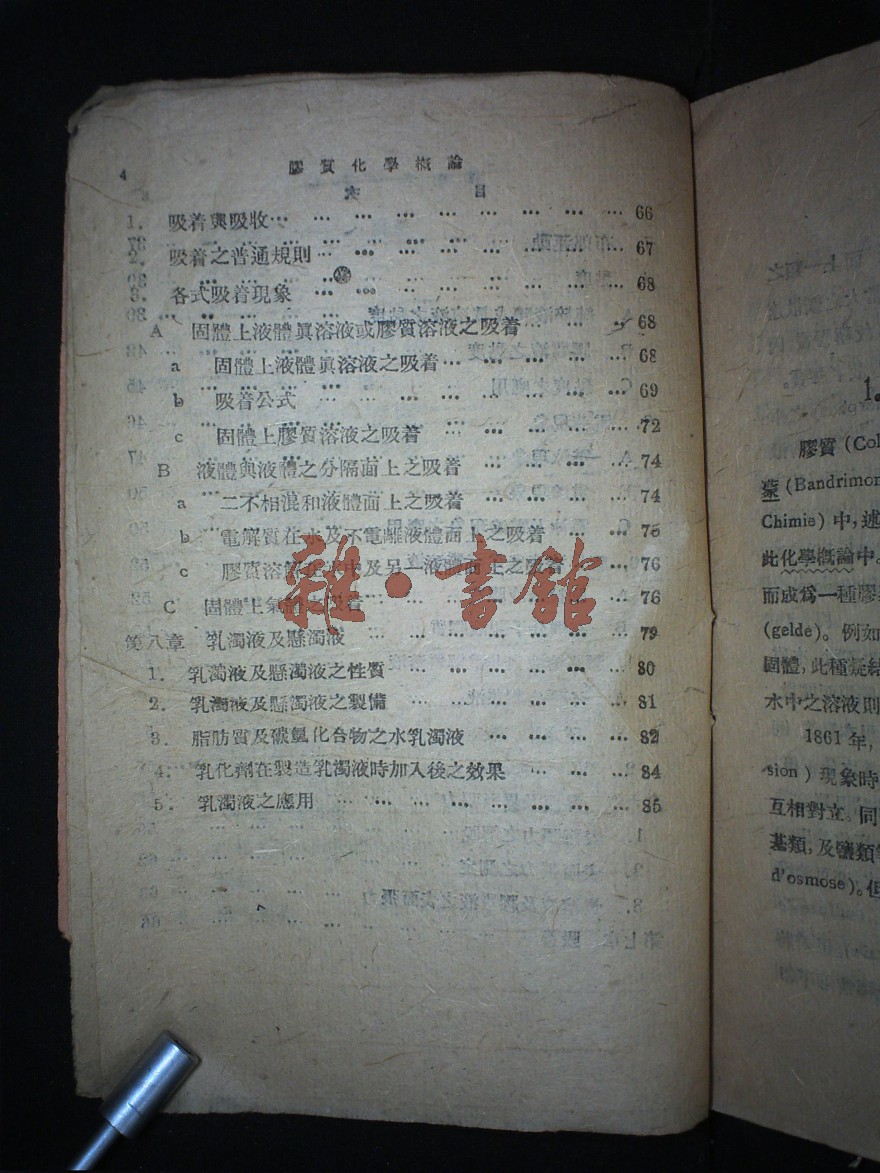 4
膠質化學概論
次 目
1. 吸着與吸收… … … … … … … … … 66
2. 吸着之普通規則… … … … … … … … 67
3. 各式吸着現象 … … … … … … … … 68
A 固體上液體眞溶液或膠質溶液之吸着 … … 68
a 固體上液體眞溶液之吸着… … … … … 68
b 吸着公式 … … … … … … … … 69
c 固體上膠質溶液之吸着 … … … … … 72
B 液體與液體之分隔面上之吸着 … … … … 74
a 二不相混和液體面上之吸着 … … … … 74
b 電解質在水及不電離液體面上之吸着 … … 75
c 膠質溶解在水中及另一液體面上之吸着 … 76
C 固體上氣體之吸着 … … … … … … 76
第八章 乳濁液及懸濁液 … … … … … … … 79
1. 乳濁液及懸濁液之性質 … … … … … … 80
2. 乳濁液及懸濁液之製備 … … … … … … 81
3. 脂肪質及碳氫化合物之水乳濁液 … … … … 82
4. 乳化劑在製造乳濁液時加入後之效果 … … … 84
5. 乳濁液之應用 … … … … … … … … 85
雜·書館
1.
膠質 (Col
(Bandrimon
Chimie) 中, 述
此化學概論中。
而成爲一種膠
(gelde)。例如
固體, 此種凝結
水中之溶液則
1861 年,
sion) 現象時
互相對立。同
基類, 及鹽類等
d'osmose)。但